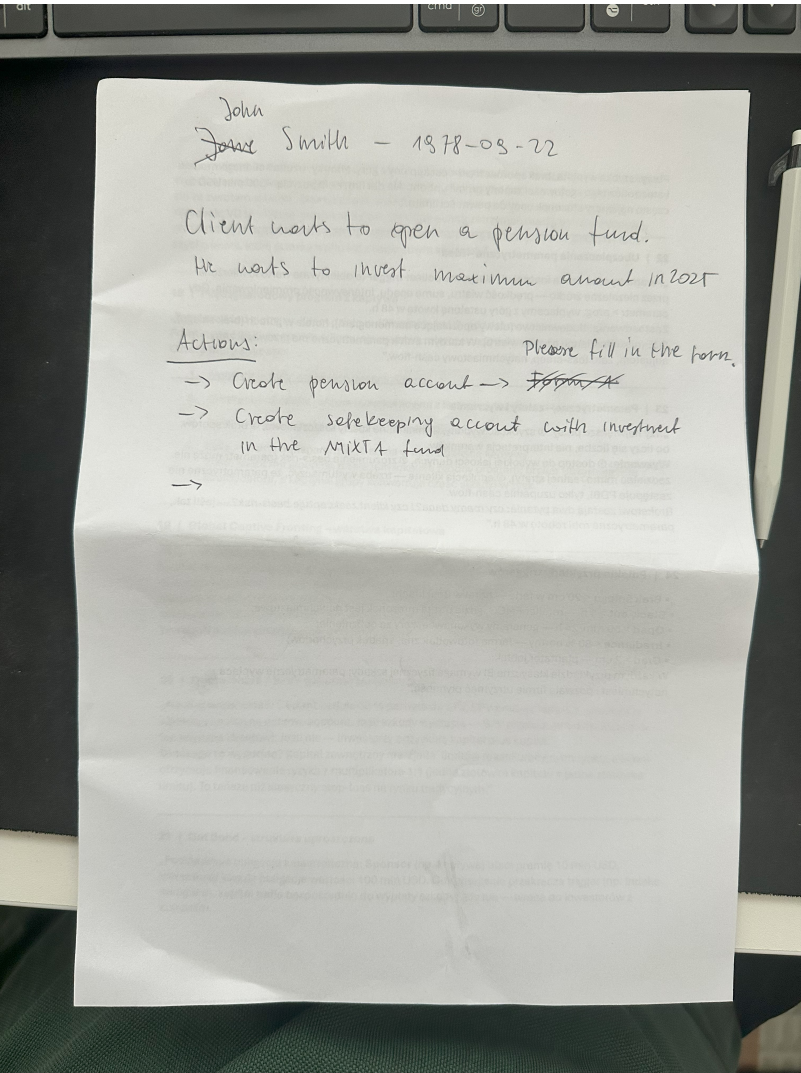 John
Smith - 1978-09-22
Client wants to open a pension fund.
He wants to invest maximum amount in 2025
Actions:
Please fill in the form.
-> Create pension account ->
-> Create safekeeping account with investment
in the MIXTA fund
->